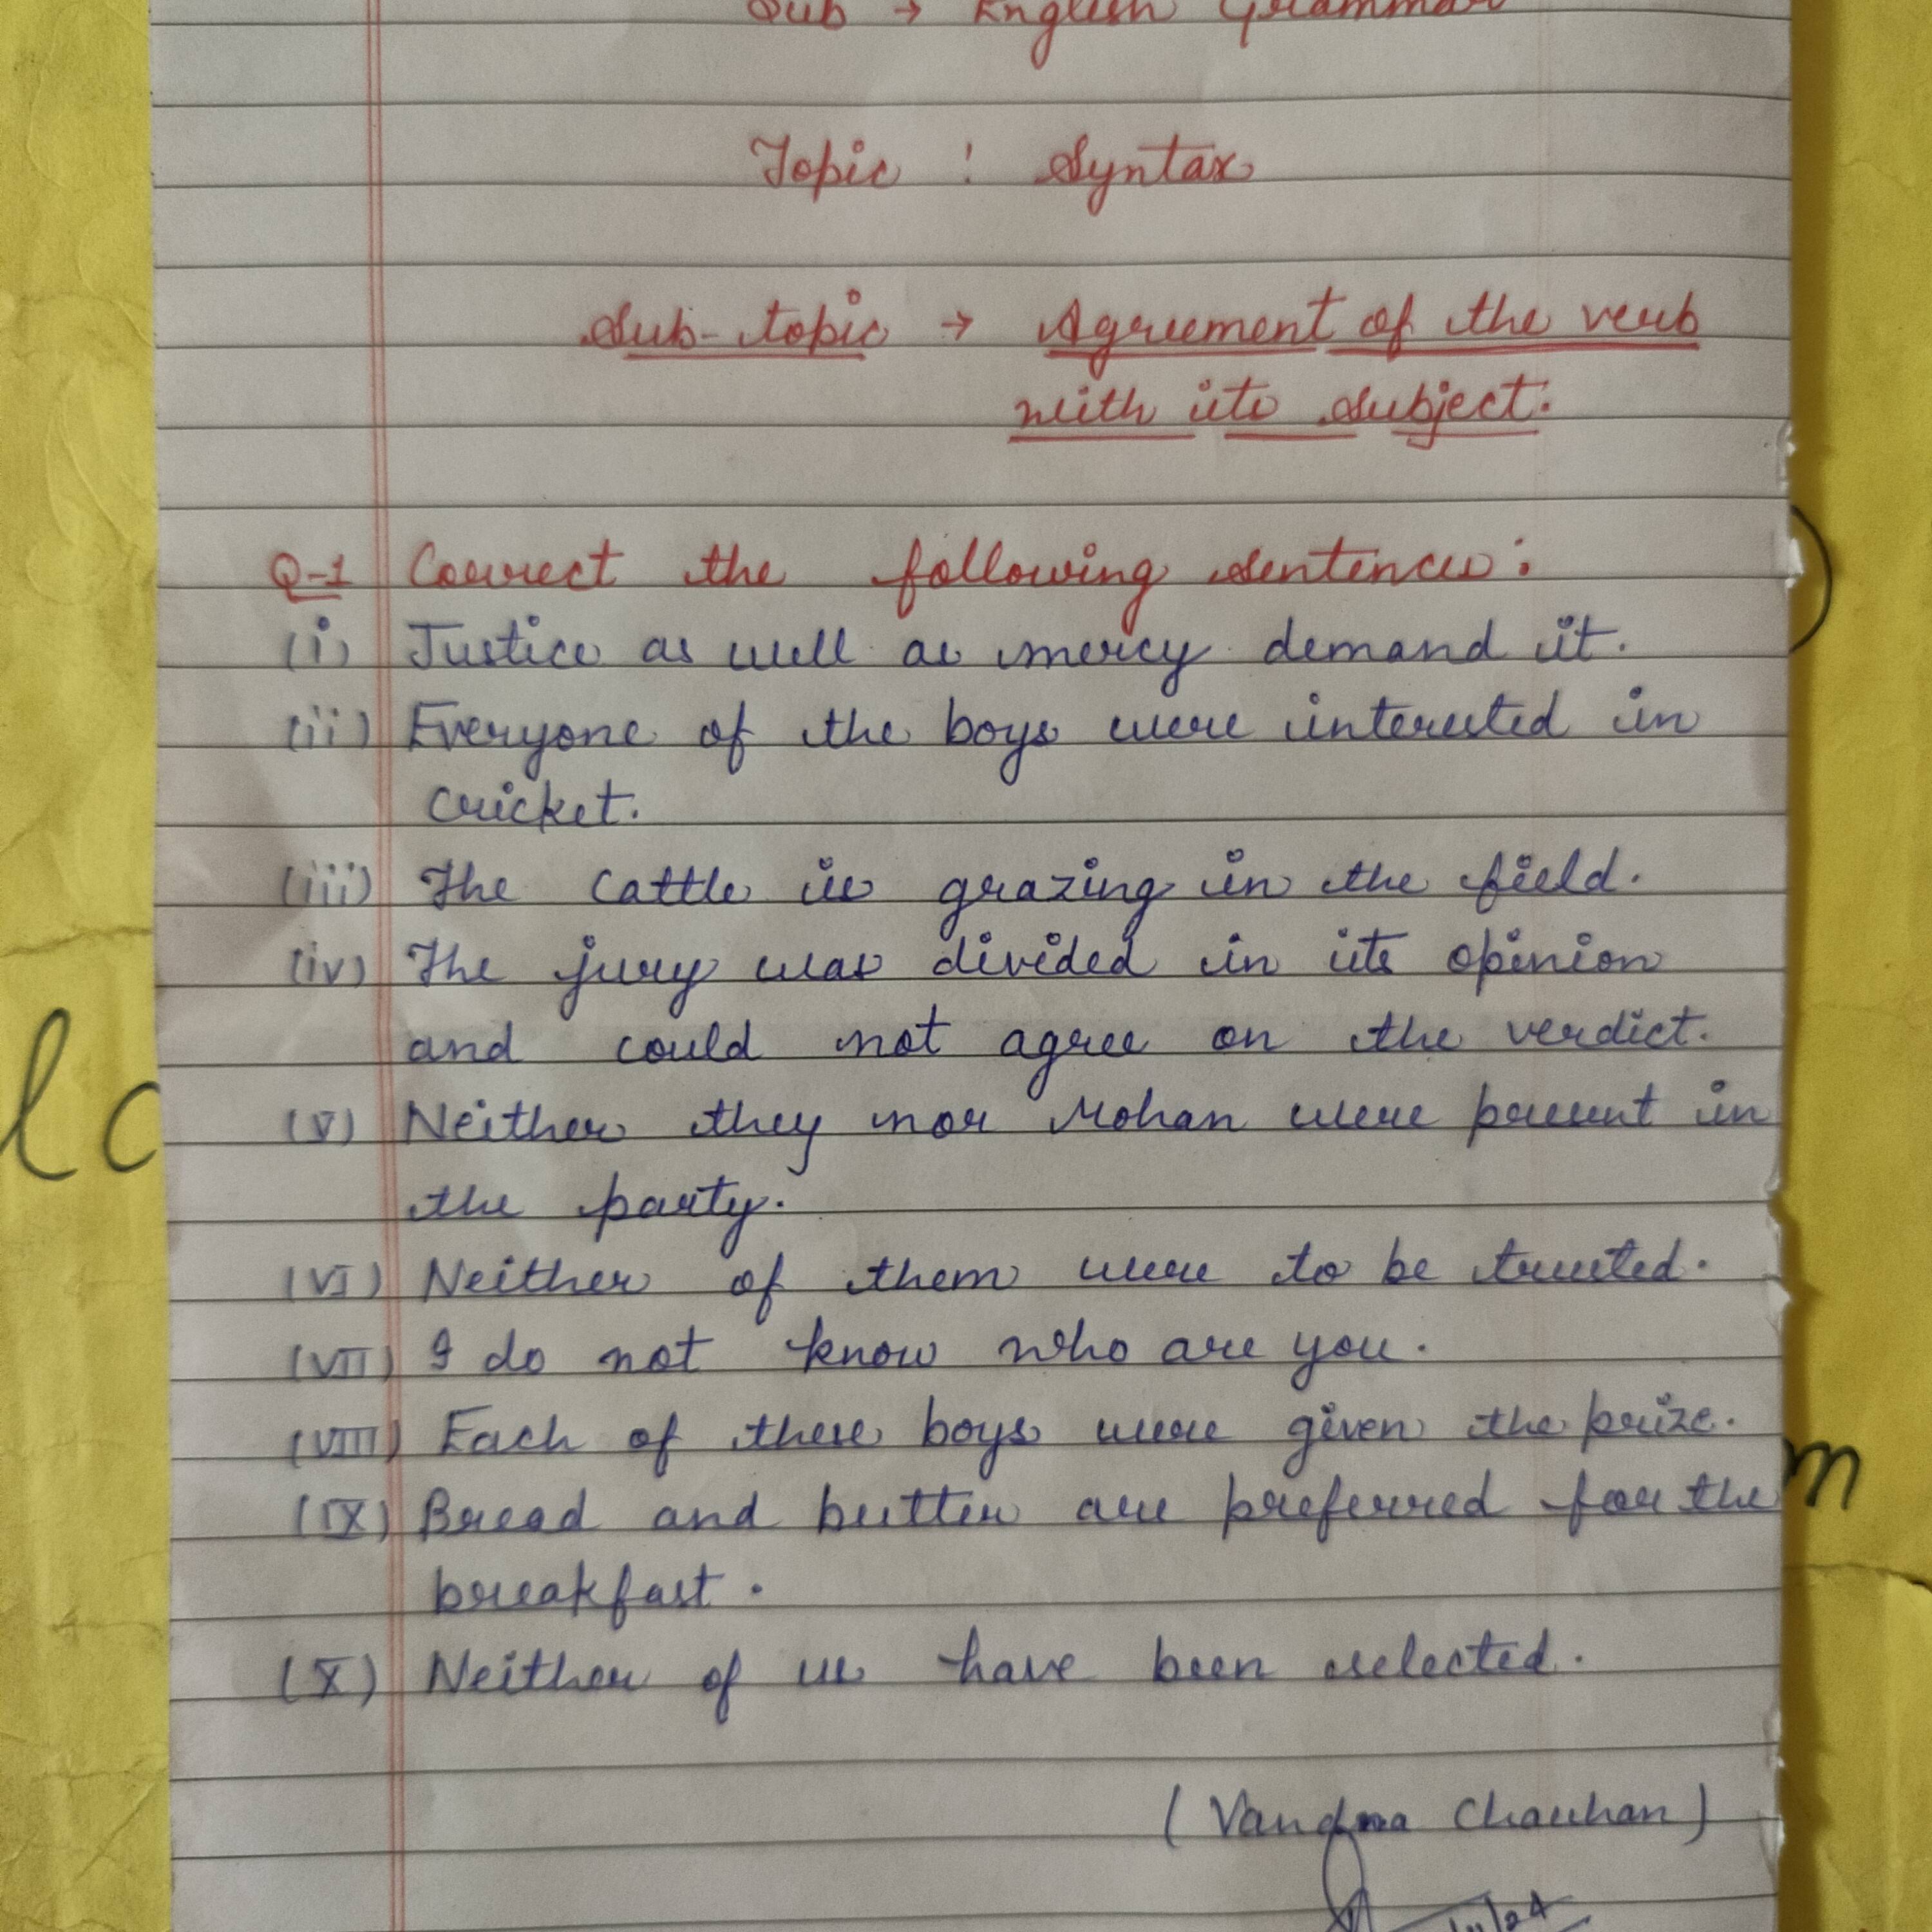 Sub → English Grammar
Topic : Syntax
Sub-topic → Agreement of the verb
with its subject.
Q-1 Correct the following sentences:
(i) Justice as well as mercy demand it.
(ii) Everyone of the boys were interested in
cricket.
(iii) The Cattle is grazing in the field.
(iv) The jury was divided in its opinion
and could not agree on the verdict.
(V) Neither they nor Mohan were present in
the party.
(VI) Neither of them were to be trusted.
(VII) I do not know who are you.
(VIII) Each of these boys were given the prize.
(IX) Bread and butter are preferred for the
breakfast.
(X) Neither of us have been selected.
(Vandna Chauhan)
lc
m